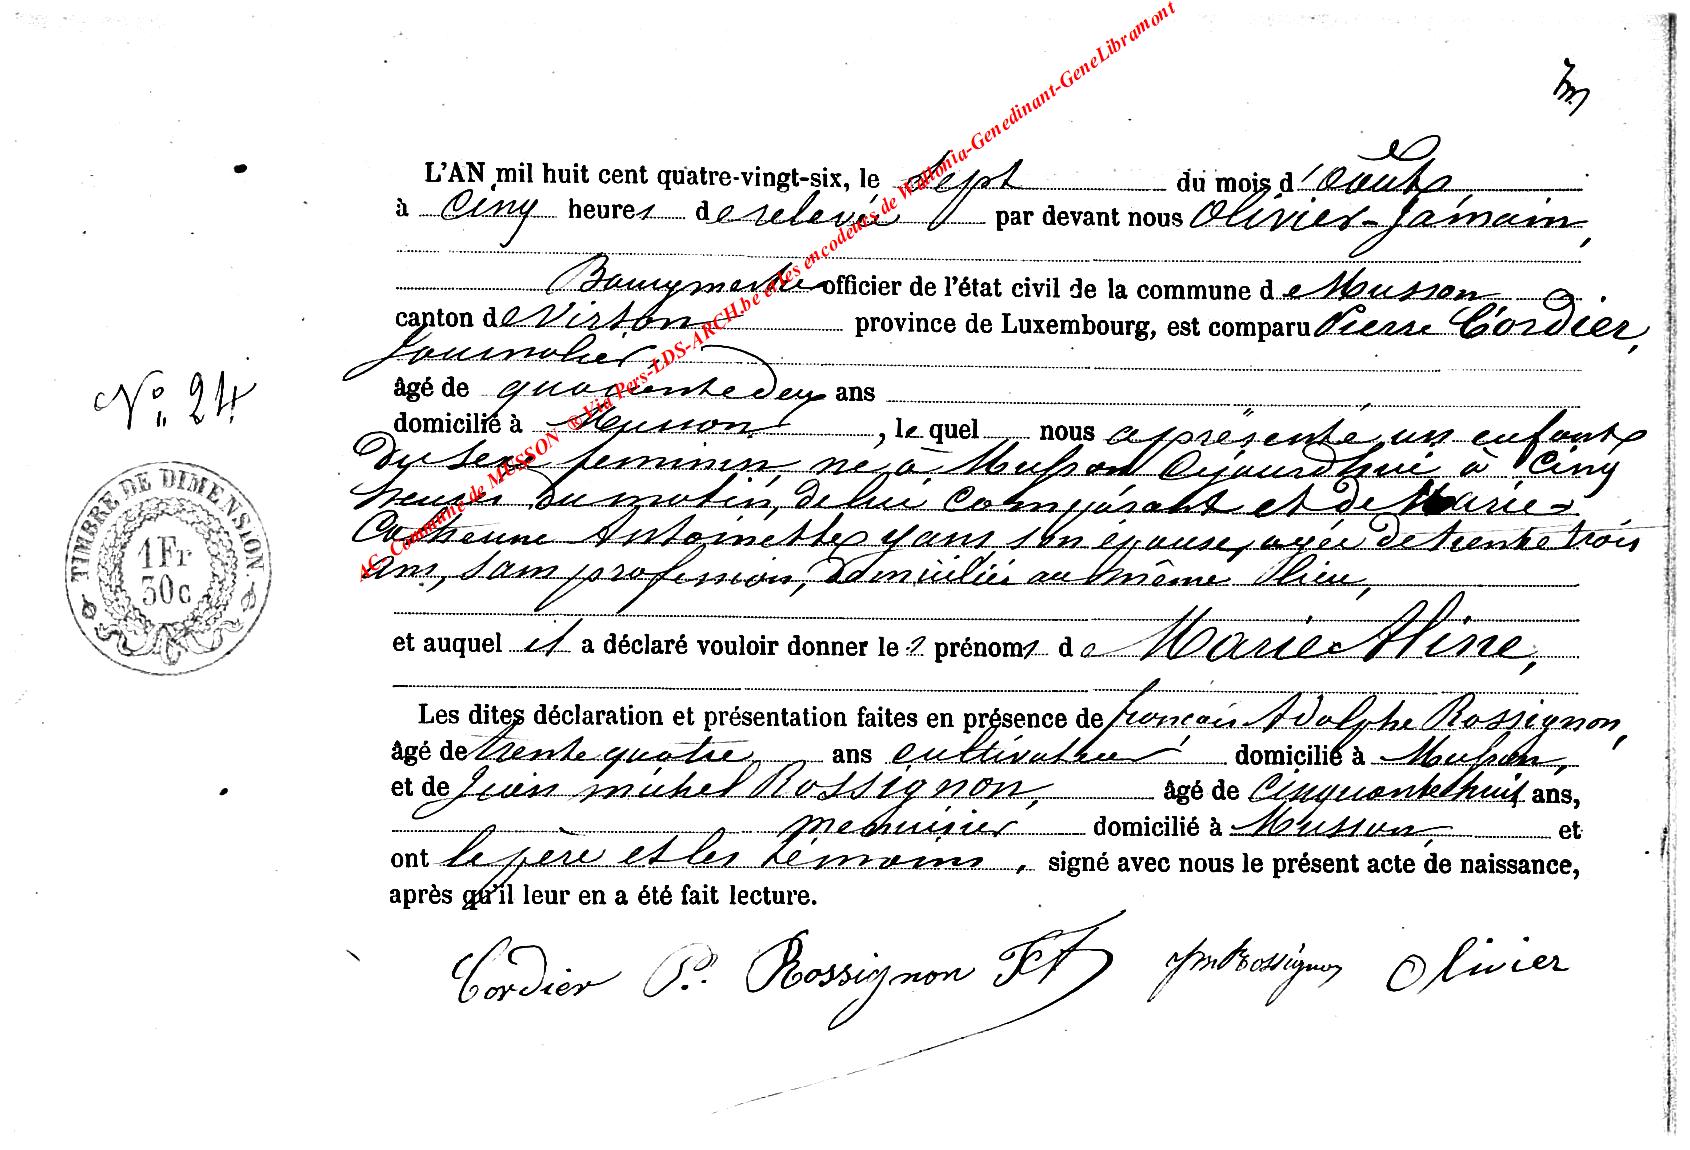 L'AN mil huit cent quatre-vingt-six, le sept du mois d'Août
à cinq heures de relevée par devant nous Olivier-Jamain,
Bourgmestre officier de l'état civil de la commune de Musson
canton de Virton province de Luxembourg, est comparu Pierre Cordier,
Journalier,
âgé de quarante deux ans
domicilié à Musson, le quel nous a présenté un enfant
du sexe feminin né à Musson cejourd'hui à cinq
heures du matin, de lui comparant et de Marie-
Catherine Antoinette Yans son épouse, agée de trente trois
ans, sans profession, domiciliée au même lieu,
et auquel il a déclaré vouloir donner les prénoms de Marie Aline,
Les dites déclaration et présentation faites en présence de françois Adolphe Rossignon,
âgé de trente quatre ans cultivateur domicilié à Musson,
et de Jean michel Rossignon, âgé de Cinquante huit ans,
menuisier domicilié à Musson et
ont le père et les témoins, signé avec nous le présent acte de naissance,
après qu'il leur en a été fait lecture.
Cordier P. Rossignon F A JM Rossignon Olivier
No. 24
TIMBRE DE DIMENSION.
1 Fr
30 c
AC. Commune de MUSSON ® Via Pers-LDS-ARCH.be et les encodeurs de Wallonia-Genedinant-GeneLibramont